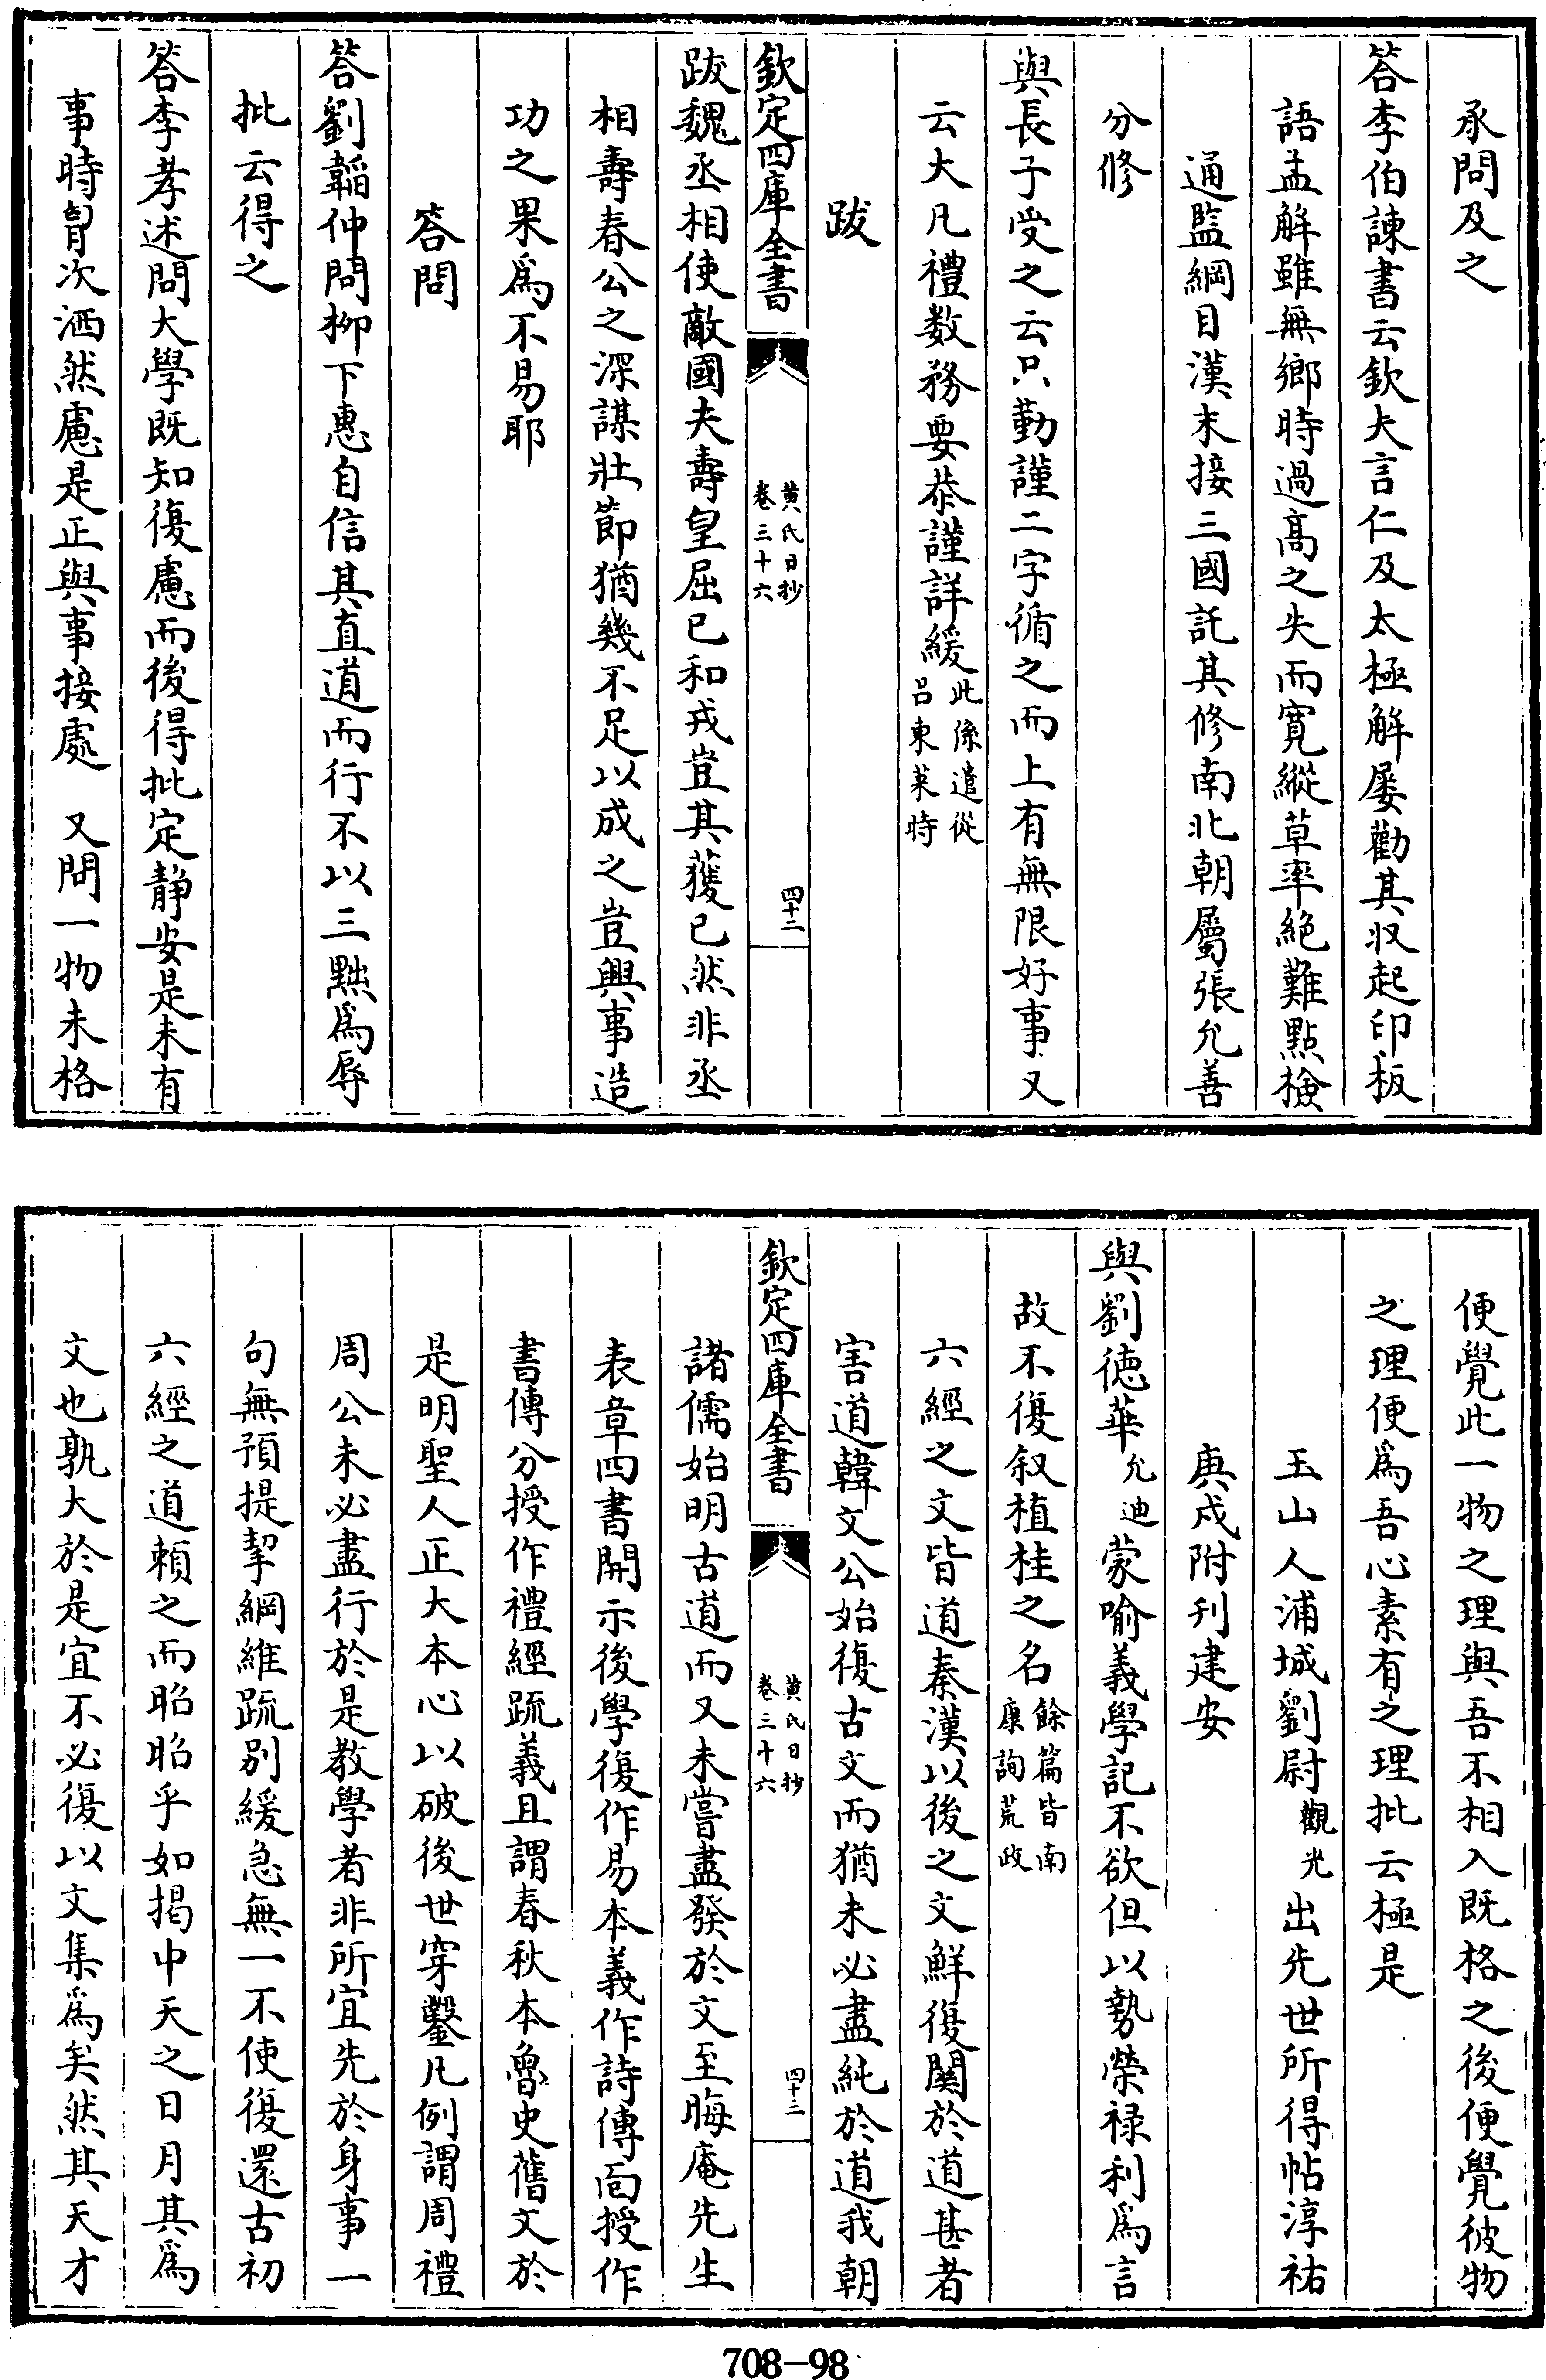 承問及之
答李伯諫書云欽夫言仁及太極解屡勸其収起印板
語孟解雖無鄉時過髙之失而寛縱草率絶難㸃檢
通監綱目漢末接三國託其修南北朝屬張允善
分修
與長子受之云只勤謹二字循之而上有無限好事又
云大凡禮数務要恭謹詳緩此係遣從
吕東莱時
跋
欽定四庫全書
黄氏日抄
卷三十六
四十二
跋魏丞相使敵國夫壽皇屈已和戎豈其獲已然非丞
相壽春公之深謀壯節猶幾不足以成之豈興事造
功之果爲不易耶
答問
答劉韜仲問栁下惠自信其直道而行不以三黜爲辱
批云得之
答李孝述問大學既知復慮而後得批定靜安是未有
事時胷次洒然慮是正與事接處 又問一物未格
便覺此一物之理與吾不相入既格之後便覺彼物
之理便爲吾心素有之理批云極是
玉山人浦城劉尉觀光出先世所得帖淳祐
庚戍附刋建安
與劉徳華允迪蒙喻義學記不欲但以勢榮禄利爲言
故不復叙植桂之名餘篇皆南
康詢荒政
六經之文皆道秦漢以後之文鮮復闗於道甚者
害道韓文公始復古文而猶未必盡純於道我朝
欽定四庫全書
黄氏日抄
卷三十六
四十三
諸儒始明古道而又未嘗盡發於文至晦庵先生
表章四書開示後學復作易本義作詩傳面授作
書傳分授作禮經疏義且謂春秋本魯史舊文於
是明聖人正大本心以破後世穿鑿凡例謂周禮
周公未必盡行於是教學者非所宜先於身事一
句無預提挈綱維疏别緩急無一不使復還古初
六經之道頼之而昭昭乎如揭中天之日月其爲
文也孰大於是宜不必復以文集爲矣然其天才
708-98